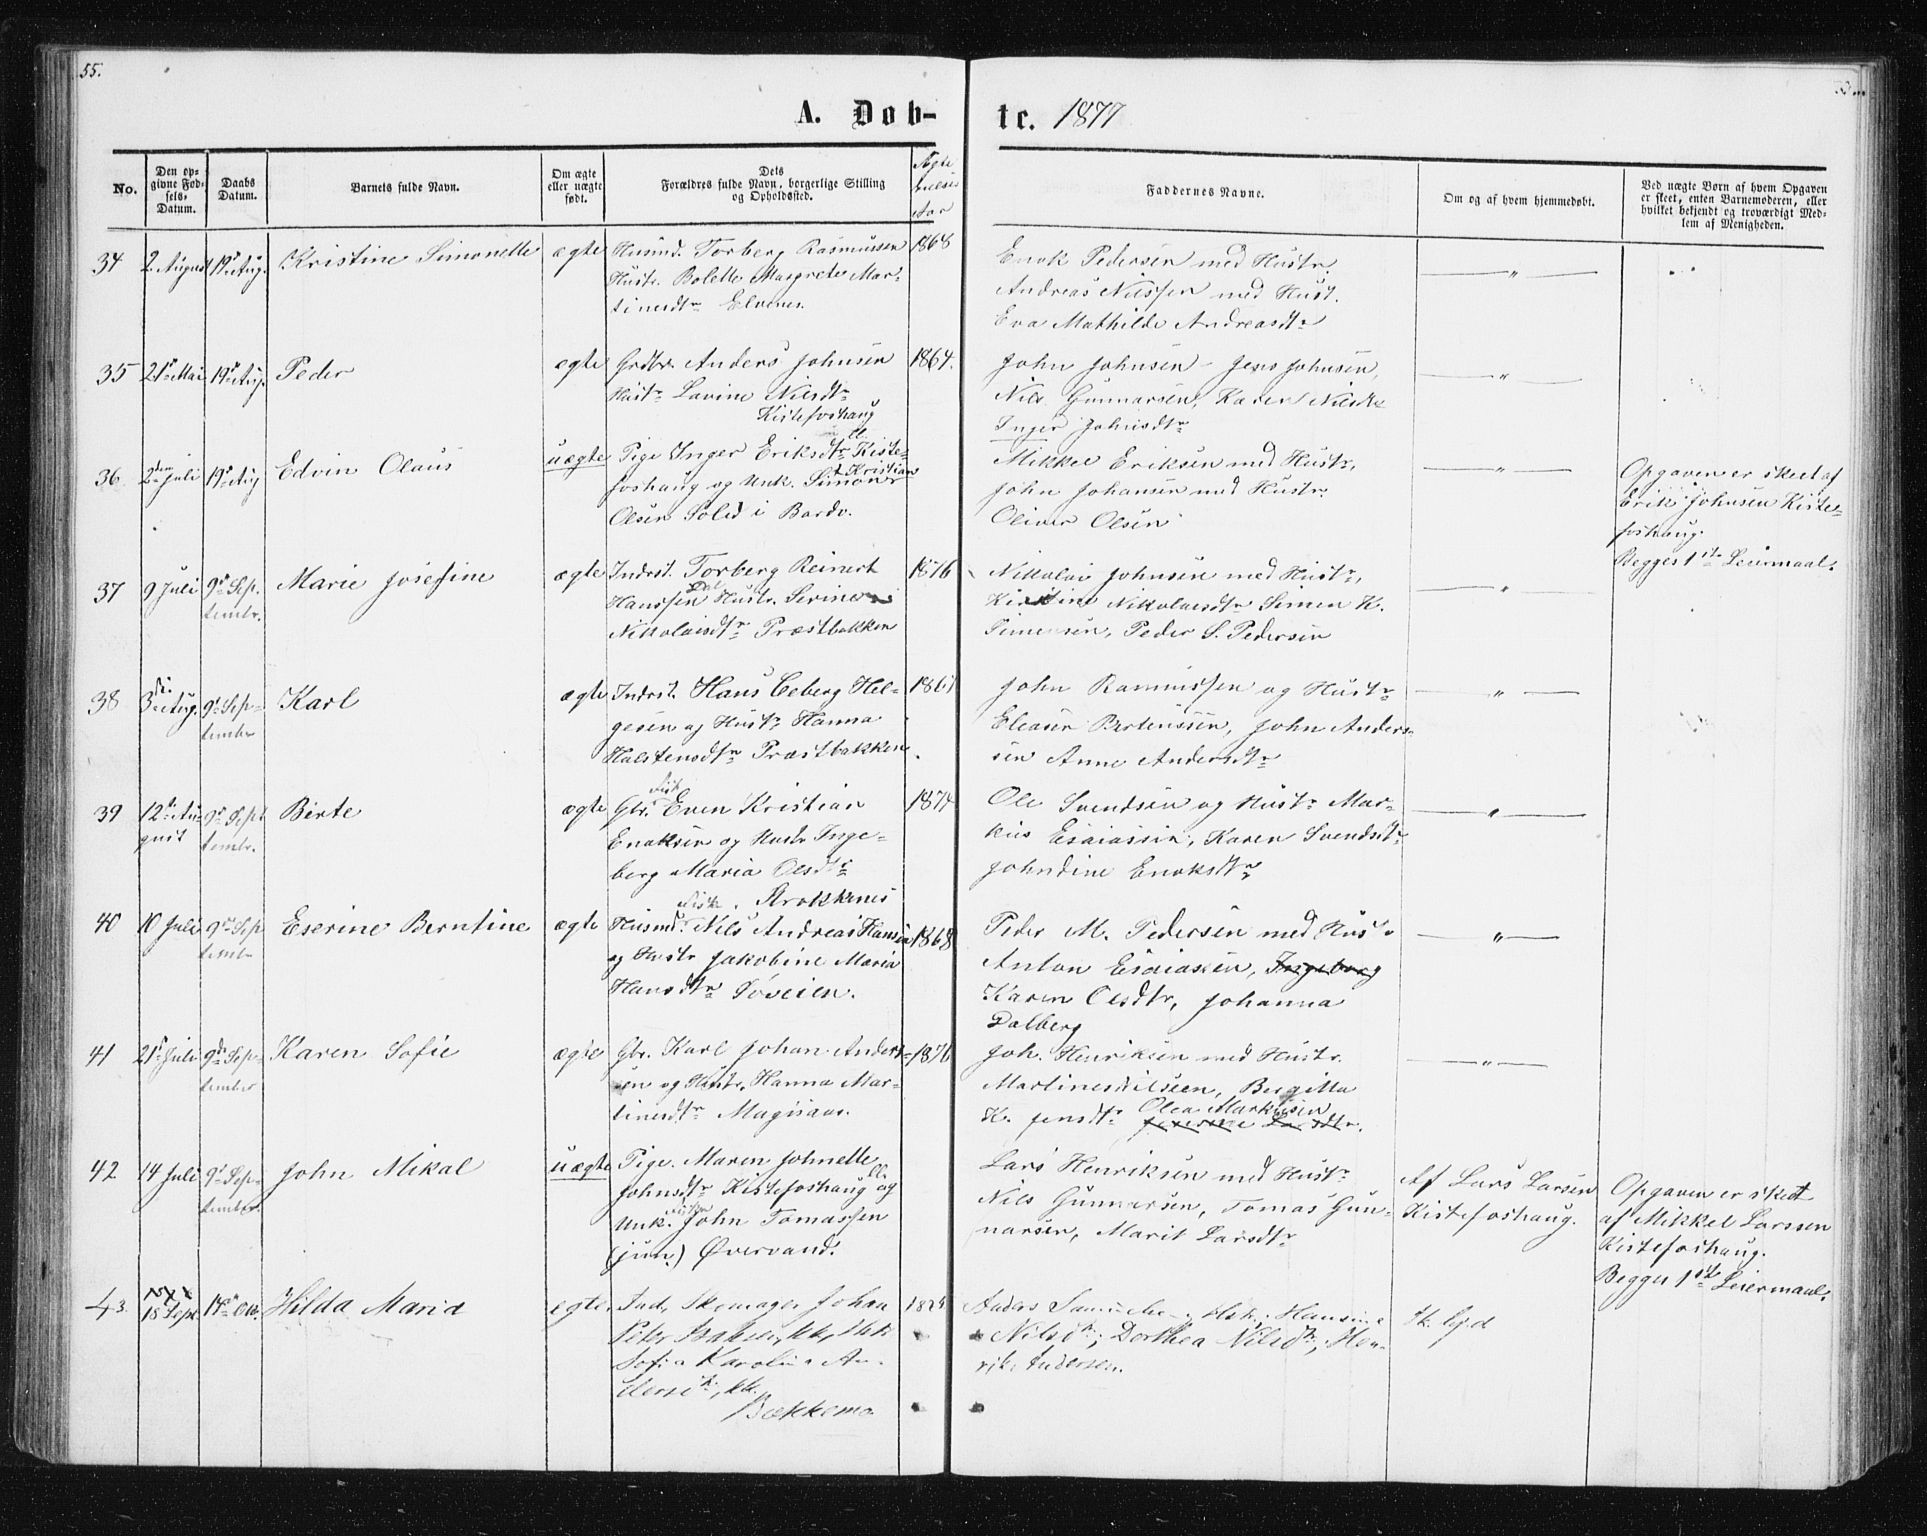 55.
A. Døb-
te. 1877
No.
Den op-
givne Fød-
sels-
Datum.
Daabs
Datum.
Barnets fulde Navn.
Om ægte
eller uægte
født.
Dets
Forældres fulde Navn, borgerlige Stilling
og Opholdssted.
Faddernes Navne.
Om og af hvem hjemmedøbt.
Ved uægte Børn af hvem Opgaven
er skeet, enten Barnemoderen, eller
hvilket bekjendt og troværdigt Med-
lem af Menigheden.
34 2 August 19 Aug. Kristine Simonette ægte Husmd. Torberg Rasmussen 1868
Hustr. Bolette Margrete Mar-
tinesdtr Elvenes.
Enok Pedersen med Hustr. — " —
Andreas Nilssen med Hust.
Eva Mathilde Andreasdtr
35 21 Mai 19 Aug. Peder ægte Grdbr. Anders Johnsen 1864.
Hustr Lavine Nilsdtr
Kistefoshaug
John Johnsen - Jens Johnsen, — " —
Nils Gunnarsen, Karen Nilsdtr
Inger Johnsdtr
36 2den Juli 19 Aug Edvin Olaus uægte Pige Inger Eriksdtr Kiste-
foshaug og Unk. Simon Kristian
Olsen Soled i Bardo.
Mikkel Eriksen med Hustr, — " —
John Johansen med Hustr.
Oliver Olsen
Opgaven er skeet af
Erik Johnsen Kiste-
foshaug.
Begges 1ste Leiermaal.
37 9 Juli 9 Sep-
tembr. Marie Josefine ægte Indrst. Torberg Reinert 1876
Hanssen Hustr. Serine
Nikolaisdtr Præstbakken
Nikolai Johnsen med Hustr, — " —
Kirstine Nikolaisdtr Simen K.
Simensen, Peder S. Pedersen
38 3 Aug. 9 Sep-
tembr Karl ægte Indrst. Hans Ceberg Hel-
gesen og Hustr Hanna
Halstensdtr Præstbakken
John Rasmussen og Hustr — " —
Eleasur Bertenssen, John Anders-
sen Anne Andersdtr
39 12 Au-
gust 9 Sept
tembr. Birte ægte Gbr. Even Kristian 1874
Enoksen og Hustr Inge-
berg Maria Olsdtr
Strokkenes
Ole Svendsen og Hustr Mar- — " —
kus Esaiassen, Karen Svendsdtr
Johndine Enoksdtr
40 10 Juli 9 Sep
tembr Eserine Berntine ægte Husmd. Nils Andreas Hansen 1868
og Hustr Jakobine Maria
Hansdtr Søveien.
Peder M. Pedersen med Hustr — " —
Anton Esaiassen, Ingeborg
Karen Olsdtr, Johanna
Dalberg
41 21 Juli 9 Sep-
tember Karen Sofie ægte Gbr. Karl Johan Anders- 1876
sen og Hustr. Hanna Mar-
tinesdtr Møgisaas.
Joh. Henriksen med Hustr. — " —
Martines Nilseen, Bergitta
K. Jensdtr Olea Markusen
42 14 Juli 9 Sep-
tember. John Mikal uægte Pige. Maren Johnette
Johnsdtr Kistefoshaug og
Unk. John Tomassen
(jun.) Øvervand.
Lars Henriksen med Hustr
Nils Gunnarsen, Tomas Gun-
narsen, Marit Larsdtr
Af Lars Larsen
Kistefoshaug.
Opgaven er skedt
af Mikkel Larssen
Kistefoshaug.
Begges 1ste Leiermaal.
43 18 Sept. 14 Okt. Hilda Maria ægte Ind, Skomager Johan
Sofia Karolina An-
dersdtr,
Bækkemo
Anders
Nilsdtr; Dorthea Nilsdtr, Hen-
rik Andersen.